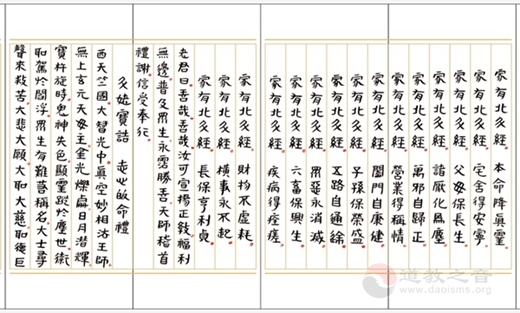 家有北斗經 本命降真靈
家有北斗經 宅舍得安寧
家有北斗經 父母保長生
家有北斗經 諸厭化為塵
家有北斗經 萬邪自歸正
家有北斗經 營業得稱情
家有北斗經 閤門自康健
家有北斗經 子孫保榮盛
家有北斗經 五路自通
家有北斗經 眾惡永消滅
家有北斗經 六畜保興生
家有北斗經 疾病得痊瘥
家有北斗經 財物不虛耗
家有北斗經 橫事永不起
家有北斗經 長保亨利貞
老君曰善哉善哉汝可宣揚正教福利
無邊普及眾生永霑勝善天師稽首
禮謝信受奉行
斗姥寶誥 志心皈命禮
西天竺國大智光中真空妙相法王師
無上玄元天母主金光爍處日月潛輝
寶杵旋時鬼神失色顯靈蹤於塵世衛
聖駕於閻浮眾生有難若稱名大士尋
聲來救苦大悲大願大聖大慈聖後巨
道教之音
www.daoisms.org